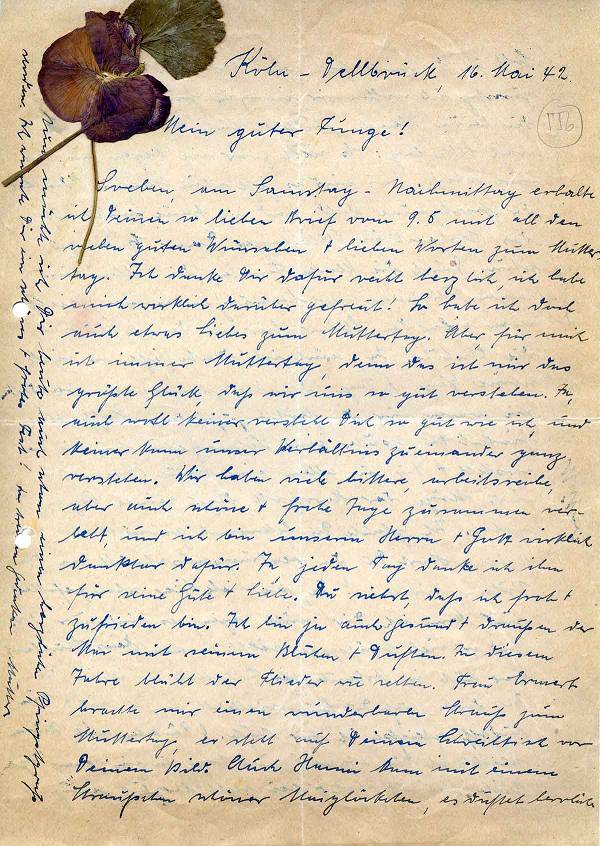 Köln-Dellbrück, 16. Mai 42.
Mein guter Junge!
Soeben, am Samstag-Nachmittag erhalte
ich Deinen so lieben Brief vom 9.5 mit all den
vielen guten Wünschen + lieben Worten zum Mutter
tag. Ich danke Dir dafür recht herzlich, ich habe
mich wirklich darüber gefreut! So habe ich doch
auch etwas Liebes zum Muttertag. Aber, für mich
ist immer Muttertag, denn das ist mir das
größte Glück, daß wir uns so gut verstehen. Ja,
auch wohl keiner versteht Dich so gut wie ich, und
keiner kann unser Verhältnis zueinander ganz
verstehen. Wir haben viele bittere, arbeitsreiche,
aber auch schöne + frohe Tage zusammen ver-
lebt, und ich bin unserm Herrn + Gott wirklich
dankbar dafür. Ja jeden Tag danke ich ihm
für seine Güte + Liebe. Du siehst, daß ich froh +
zufrieden bin. Ich bin ja auch gesund + draußen der
Mai mit seinem Blühen + Duften. In diesem
Jahre blüht der Flieder wie selten. Frau
brachte mir einen wunderbaren Strauß zum
Muttertag, er steht auf Deinem Schreibtisch vor
Deinem Bild. Auch Hanni kam mit einem
Sträußchen schöner Maiglöckchen, es duftet herrlich
Nun möchte ich Dir heute auch schon einen herzliche Pfingstgruß
senden. Ich Dir ein schönes + frohes Fest! Mutter